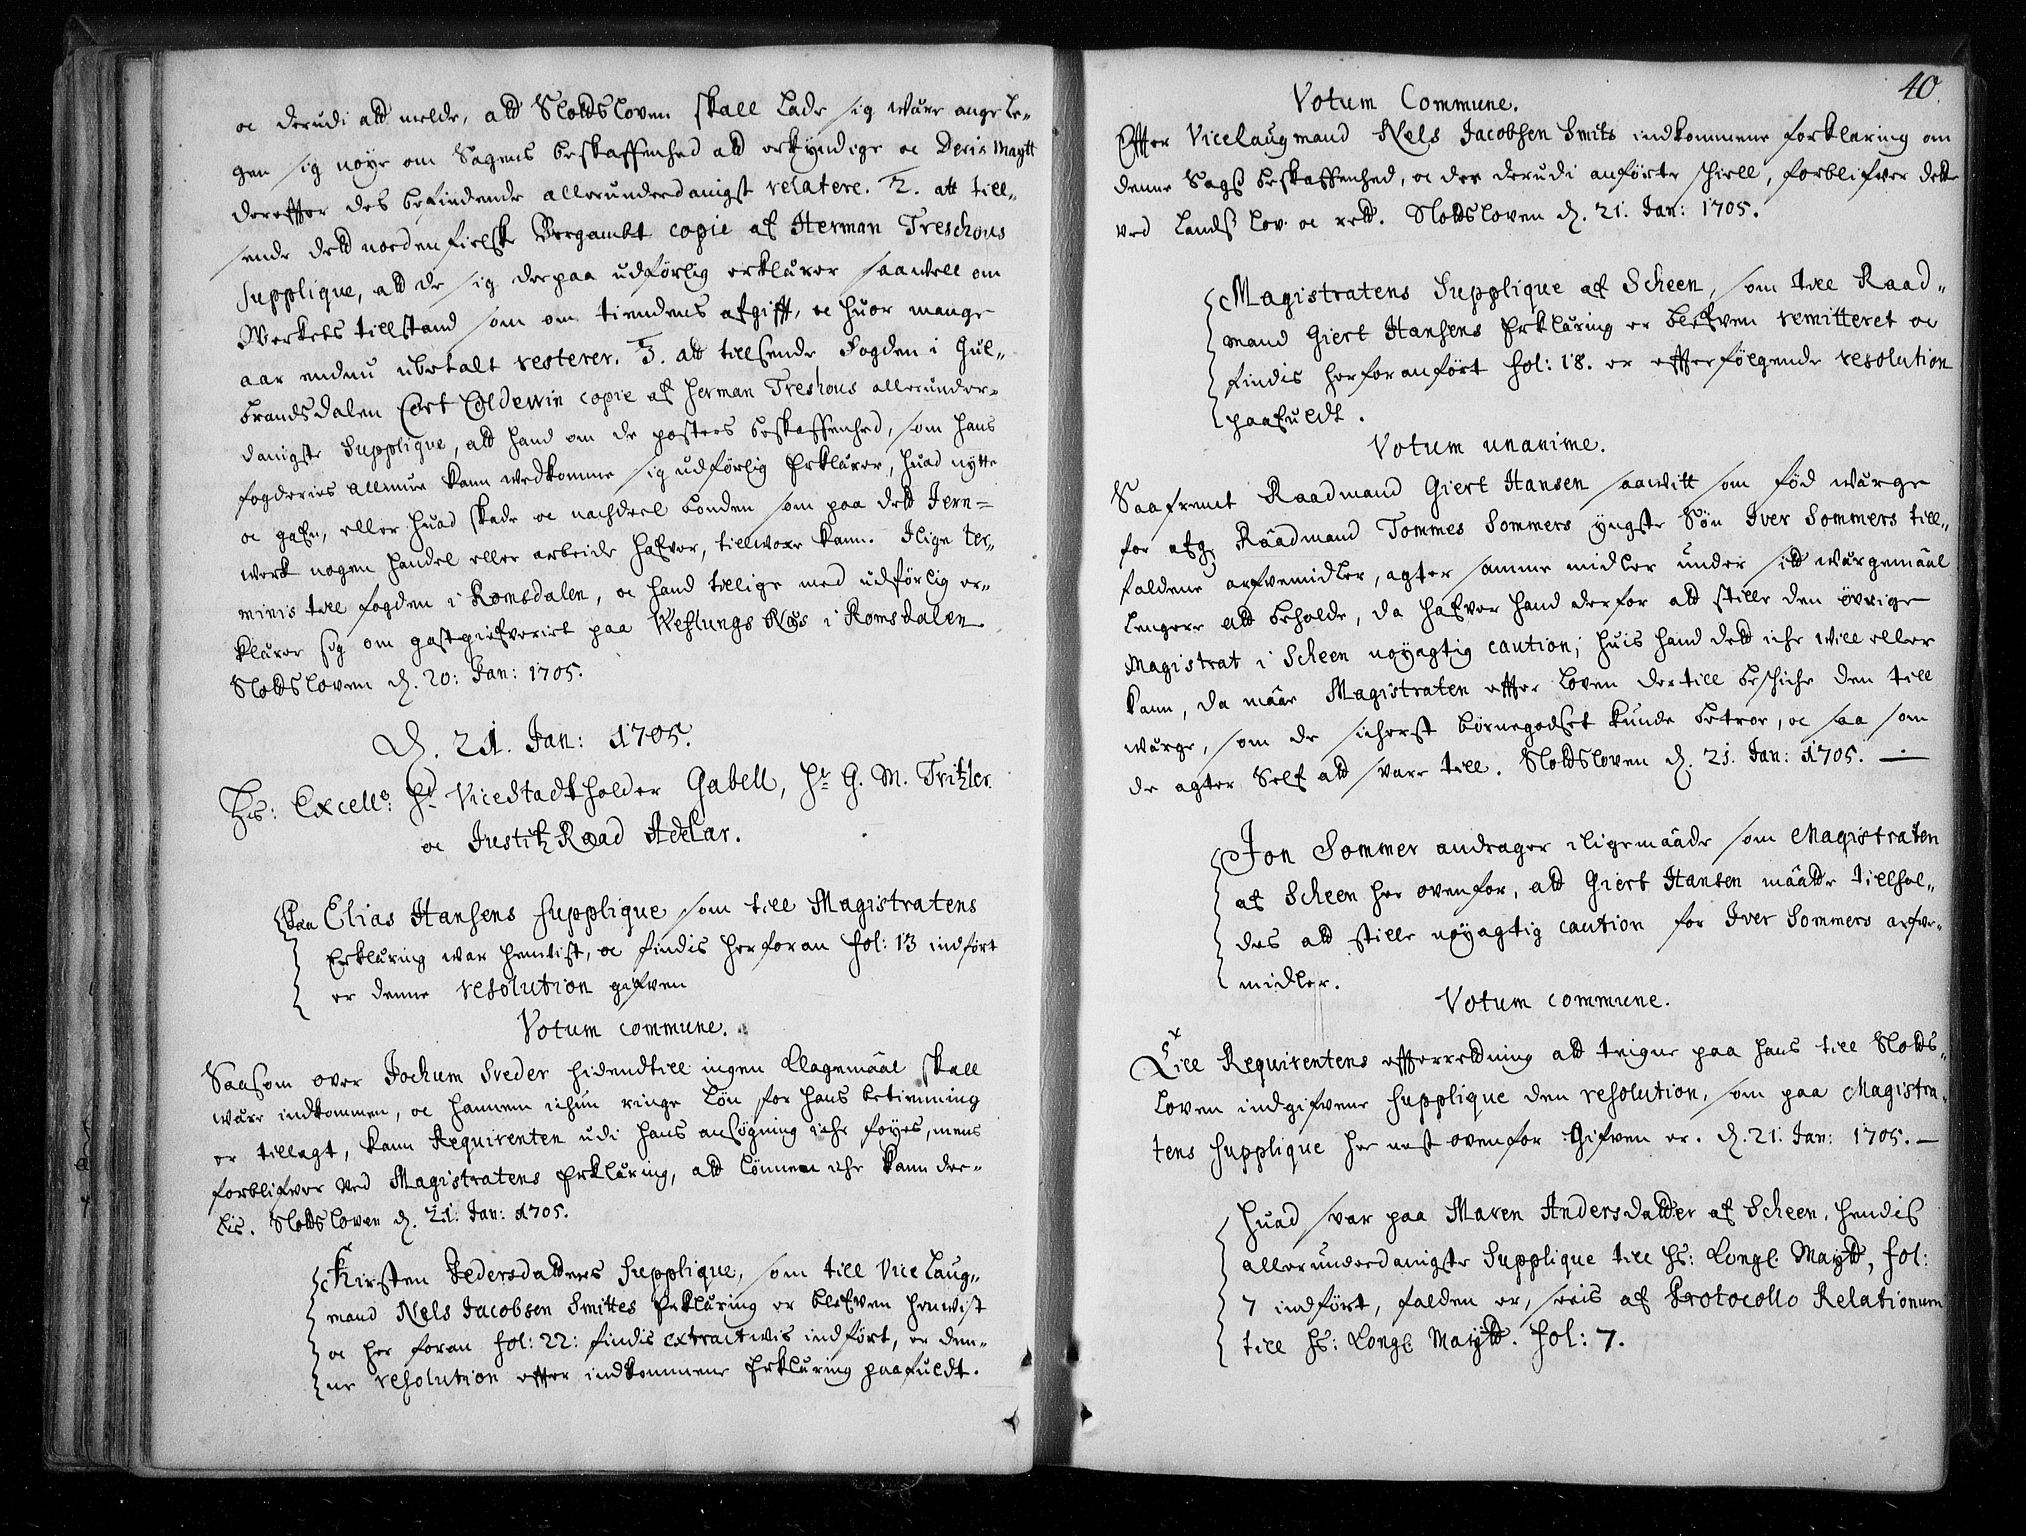 oc derudi att melde, att Slotsloven skall lade sig være angele-
gen sig nøye om Sagens beskaffenhed att erkyndige oc Deris Maytt
dereffter des befindende allerunderdanigst relatere. 2. att till-
sende dett nordenfielske Bergambt copie af Herman Treschous
supplique, att de sig derpaa udførlig erklærer saawell om
Werkets tillstand som om tiendens afgifft, oc huor mange
aar endnu ubetalt resterer. 3. att tillsende Fogden i Gul-
brandsdalen Cort Coldewin copie af Herman Treshous allerunder-
danigste Supplique, att hand om de posters beskaffenhed, som hans
fogderies allmue kann vedkomme sig udførlig Erklærer, huad nytte
oc gafn, eller huad skade oc nachdeel bonden som paa dett Jern-
werk nogen handel eller arbeide hafver, tillvoxe kann. Ilige ter-
minis till fogden i Romsdalen, oc hand tillige med udførlig er-
klærer sig om gastgiefveriet paa Weflungs Næs i Romsdalen
Slotsloven d. 20: Jan: 1705.
D. 21. Jan: 1705.
Hs: Excell: Hr Vicestadtholder Gabell, Hr G. M. Tritzler.
oc Justitz Raad Adelar.
Paa Elias Hansens supplique som till Magistratens
Erklæring war henvist, oc findis herforan fol: 13 indført
er denne resolution gifven
Votum commune.
Saasom over Jochum Sveder hidendtill ingen Klagemåål skall
være indkommen, oc hannem ichun ringe Løn for hans betienning
er tillagt, kann Requirenten udi hans ansøgning iche føyes, mens
forblifver ved Magistratens Erklæring, att lønnen iche kann dee-
lis. Slotsloven d. 21. Jan: 1705.
Kirsten Pedersdatters supplique, som till Vice Laug-
mand Nels Jacobsen Smittes Erklæring er blefven henvist
oc her foran fol: 22: findis extractwis indført, er den-
ne resolution effter indkommene Erklæring paafuldt.
40.
Votum Commune.
Effter Vicelaugmand Nels Jacobsen Smits indkommene forklaring om
denne Sags beskaffenhed, oc der derudi anførte skiell, forblifver dette
ved Lands lov oc rett. Slotsloven d. 21. Jan: 1705.
Magistratens Supplique af Scheen, som till Raad-
mand Giert Hansens Erklæring er blefven remitteret oc
findis herforanført fol: 18. er effterfølgende resolution
paafuldt.
Votum unanime.
Saafremt Raadmand Giert Hansen saawitt som fød wærge
for afg. Raadmand Tommes Sommers yngste Søn Iver Sommers till-
faldene arfvemidler, agter samme midler under sitt wærgemåål
lengere att beholde, da hafver hand derfor att stille den øvrige
Magistrat i Scheen nøyagtig caution; huis hand dett iche will eller
kann, da måå Magistraten effter Loven dertill beschiche den till
wærge, som de sicherst børnegodset kunde betroe, oc saa som
de agter self att svare till. Slotsloven d. 21. Jan: 1705. —
Jon Sommer andrager iligemååde som Magistraten
af Scheen her ovenfor, att Giert Hansen måtte tillhol-
des att stille nøyagtig caution for Iver Sommers arfve-
midler.
Votum commune.
Till Requirentens effterretning att teigne paa hans till Slots-
Loven indgifvene supplique den resolution, som paa Magistra-
tens supplique her nest ovenfor Gifven er. d. 21. Jan: 1705. —
Huad svar paa Maren Andersdatter af Scheen, hendis
allerunderdanigste Supplique till Hs: Kongl: Maytt, fol:
7 indført, falden er, seeis af Protocollo Relationum
till Hs: Kongl Maytt. fol: 7.